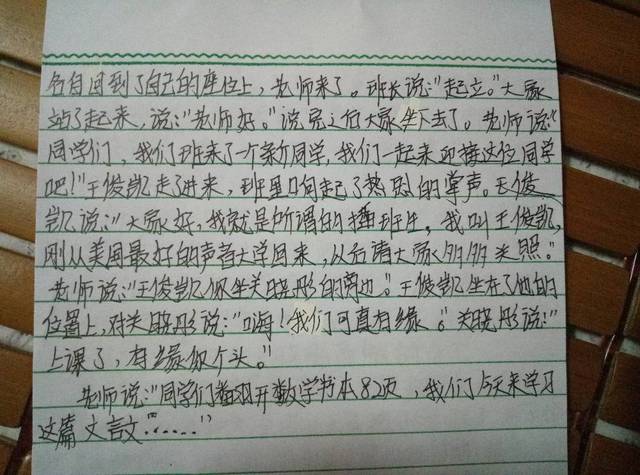 各自回到了自己的座位上，老师来了。班长说："起立。"大家
站了起来，说："老师好。"说完之后大家坐下去了。老师说："
同学们，我们班来了一个新同学，我们一起来迎接这位同学
吧！"王俊凯走了进来，班里响起了热烈的掌声。王俊
凯说："大家好，我就是所谓的插班生，我叫王俊凯，
刚从美国最好的声音大学回来，以后请大家多多关照。"
老师说："王俊凯你坐关晓彤的旁边。"王俊凯坐在了他的
位置上，对关晓彤说："嗨！我们可真有缘。"关晓彤说："
上课了，有缘你个头。"
老师说："同学们翻开数学书本82页，我们今天来学习
这篇文言文……"